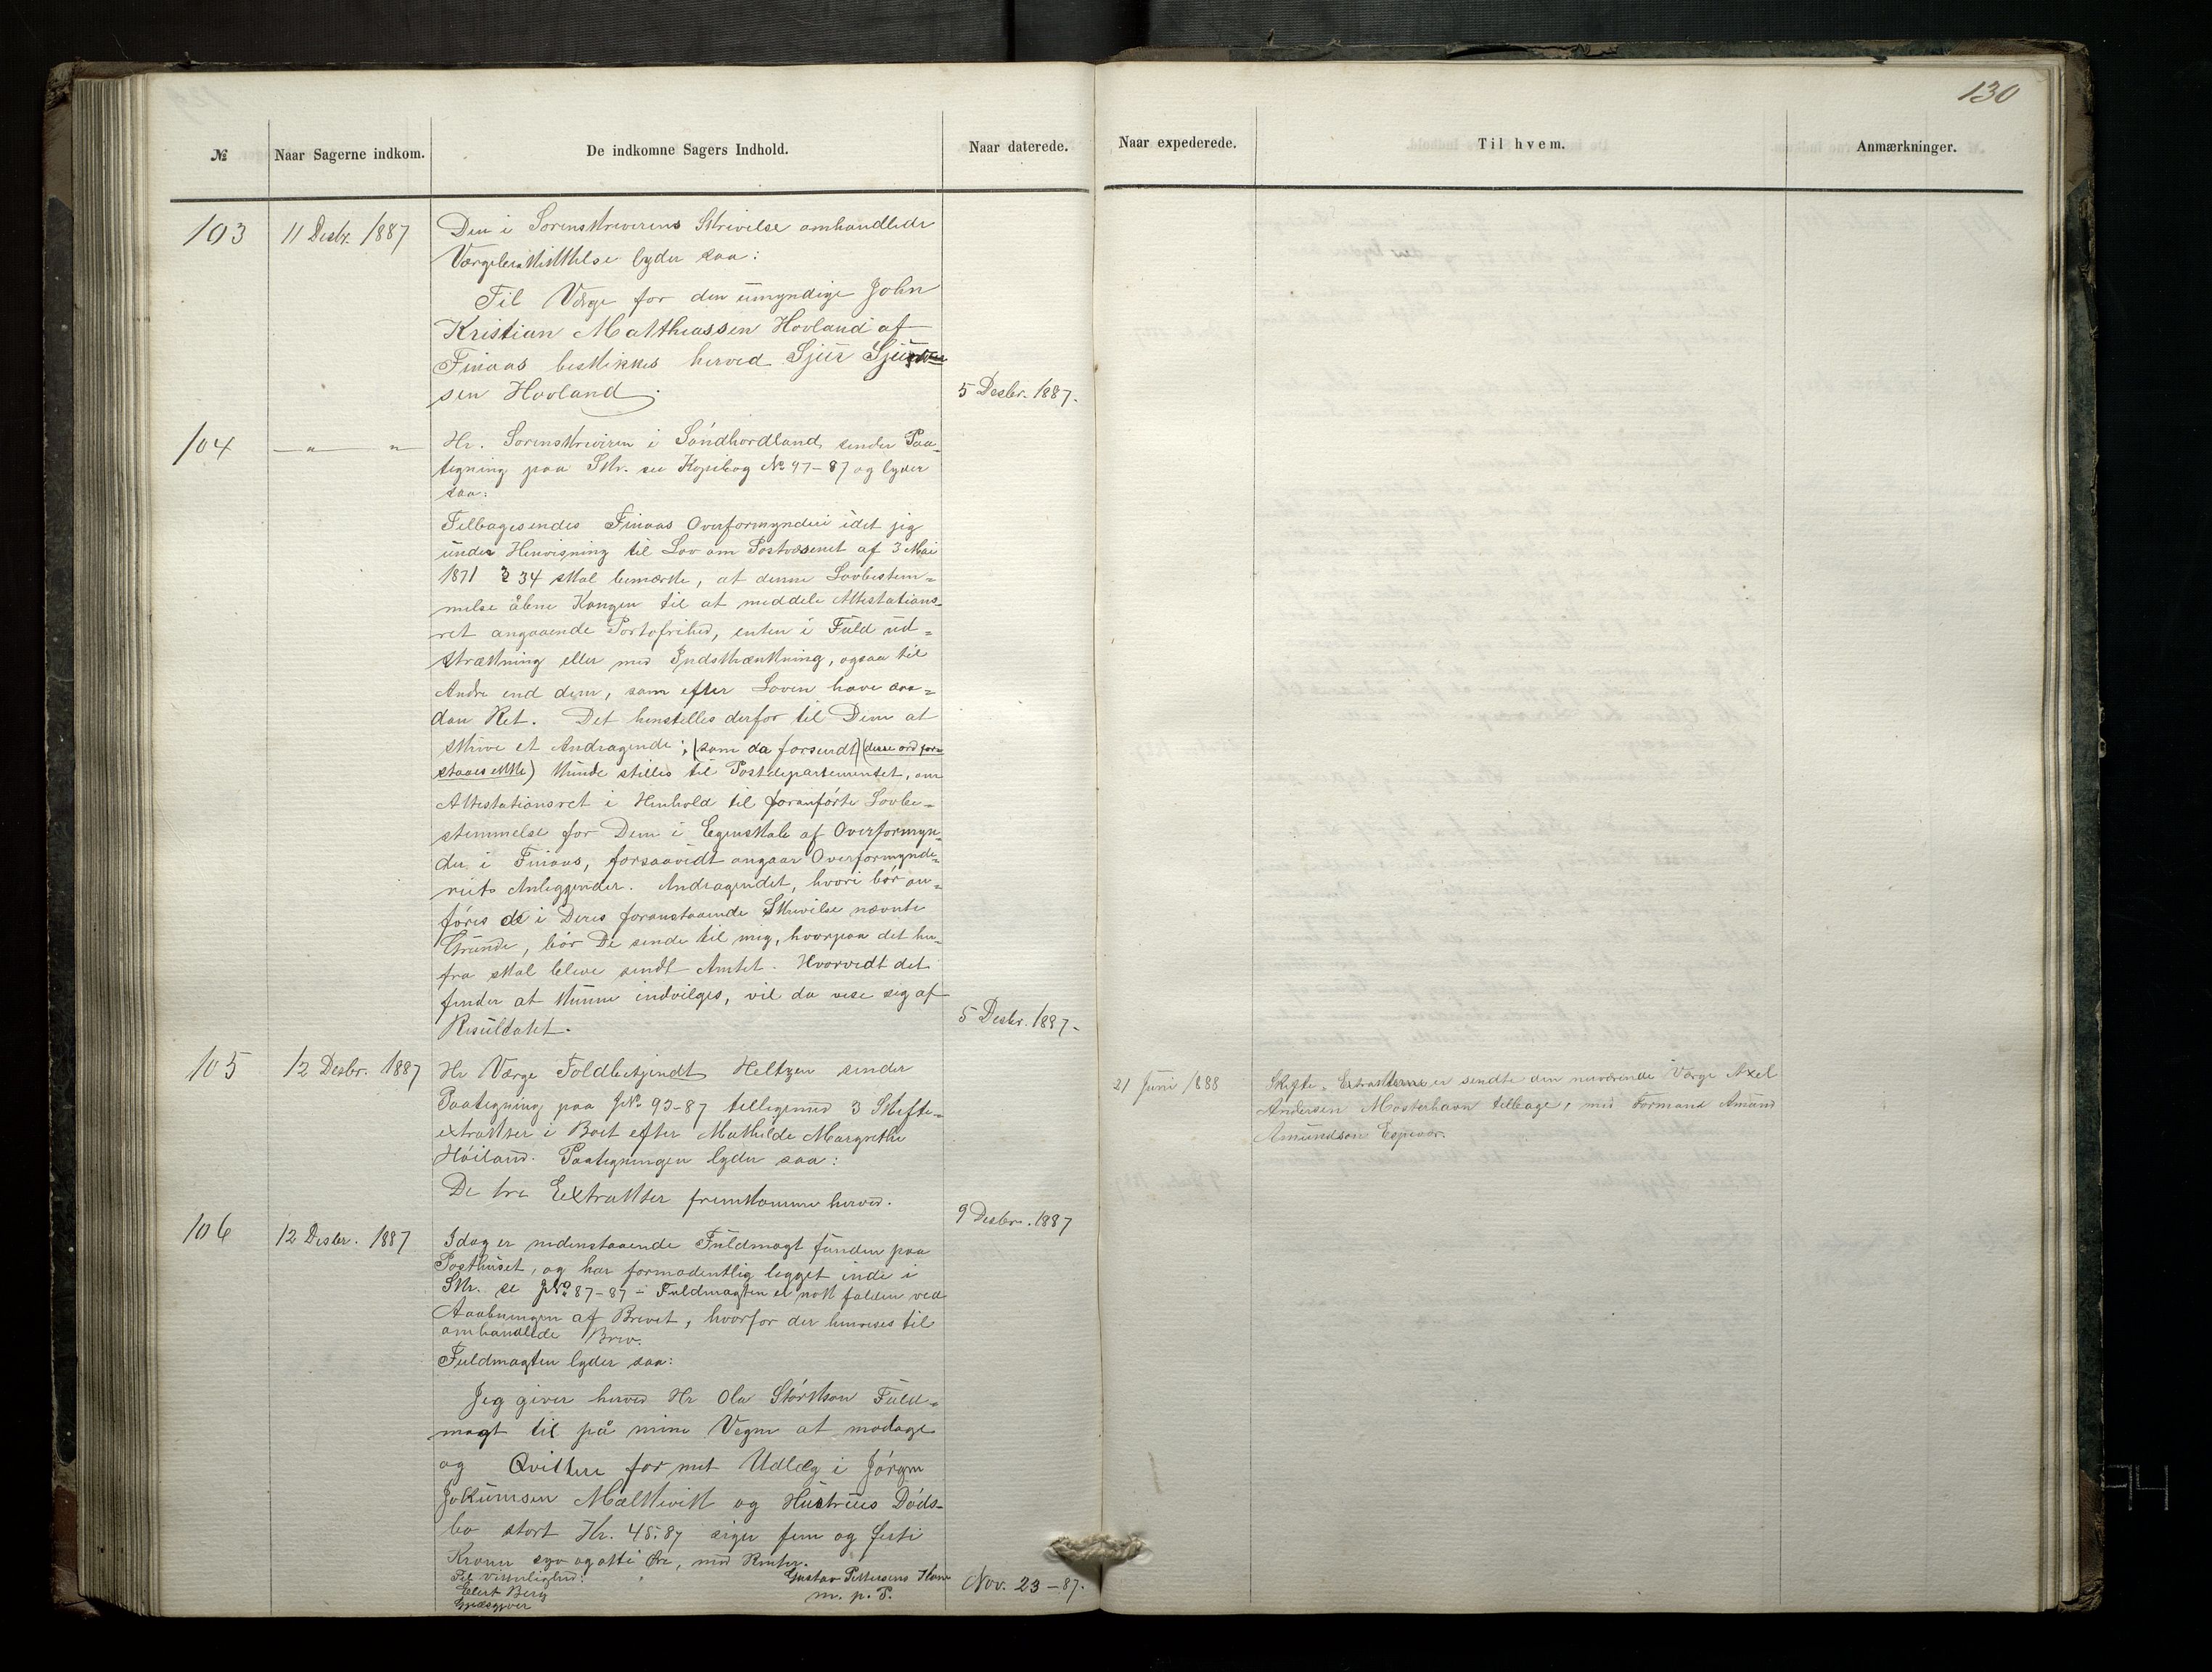 130
№ Naar Sagerne indkom. De indkomne Sagers Indhold. Naar daterede. Naar expederede. Til hvem. Anmærkninger.
103 11 Desbr. 1887 Den i Sorenskriverens Skrivelse omhandlede
Værgebeskikkelse lyder saa:
Til Værge for den umyndige John
Kristian Matthiassen Hovland af
Finaas beskikkes herved Sjur Sjur
sen Hovland. 5 Desbr. 1887.
104 — " — " Hr. Sorenskriveren i Söndhordland, sender Paa-
tegning paa Skr. se Kopibog № 97-87 og lyder
saa:
Tilbagesendes Finaas Overformynderi idet jeg
under Henvisning til Lov om Postvæsenet af 3 Mai
1871 § 34 skal bemærke, at denne Lovbestem=
melse åbne Kongen til at meddele Attestations-
ret angaaende Portofrihed, enten i Fuld ud=
strækning eller med Indskrænkning, ogsaa til
Andre end dem, som efter Loven have saa=
dan Ret. Det henstilles derfor til Dem at
skrive et Andragende; (som da forsendt) (disse ord for-
staaes ikke) kunde stilles til Postdepartementet, om
Attestationsret i Henhold til foranförte Lovbe=
stemmelse for Dem i Egenskab af Overformyn-
der i Finaas, forsaavidt angaar Overformynde-
riets Anliggender. Andragendet, hvori bör an-
föres de i Deres foranstaaende Skrivelse nævnte
Grunde, bör De sende til mig, hvorpaa det her-
fra skal blive sendt Amtet. Hvorvidt det
finder at kunne indvilges, vil da vise seg af
Resultatet. 5 Desbr. 1887-
105 12 Desbr. 1887 Hr Værge Toldbetjendt Heltzen sender
Paategning paa J№ 93-87 tilligemed 3 Skifte=
extrakter i Boet efter Mathilde Margrethe
Höiland. Paategningen lyder saa:
De tre Extrakter fremkomme herved. 9 Desbr. 1887
21 Juni 1888 Skifte-Extrakterne er sendte den nuværende Værge Axel
Andersen Mosterhavn tilbage, med Formand Amund
Amundson Espevær.
106 12 Desbr. 1887 Idag er nedenstaaende Fuldmagt funden paa
Posthuset, og har formodentlig ligget inde i
Skr. se J№ 87-87 - Fuldmagten er nok falden ved
Aaabningen af Brevet, hvorfor der henvises til
omhandlede Brev.
Fuldmagten lyder saa:
Jeg giver herved Hr Ola Störkson Fuld=
magt til på mine Vegne at modage
og Qvittere for mit Udlæg i Jörgen
Jokumsen Mælkevik og Hustrues Döds-
bo stort Kr. 45.87 siger fem og förti
Kroner syv og otti Öre, med Renter.
Til vitterlighed: Gustav Pettersens Kone
Elert Berg m. p. P. Nov. 23-87.
Gjæsgiver